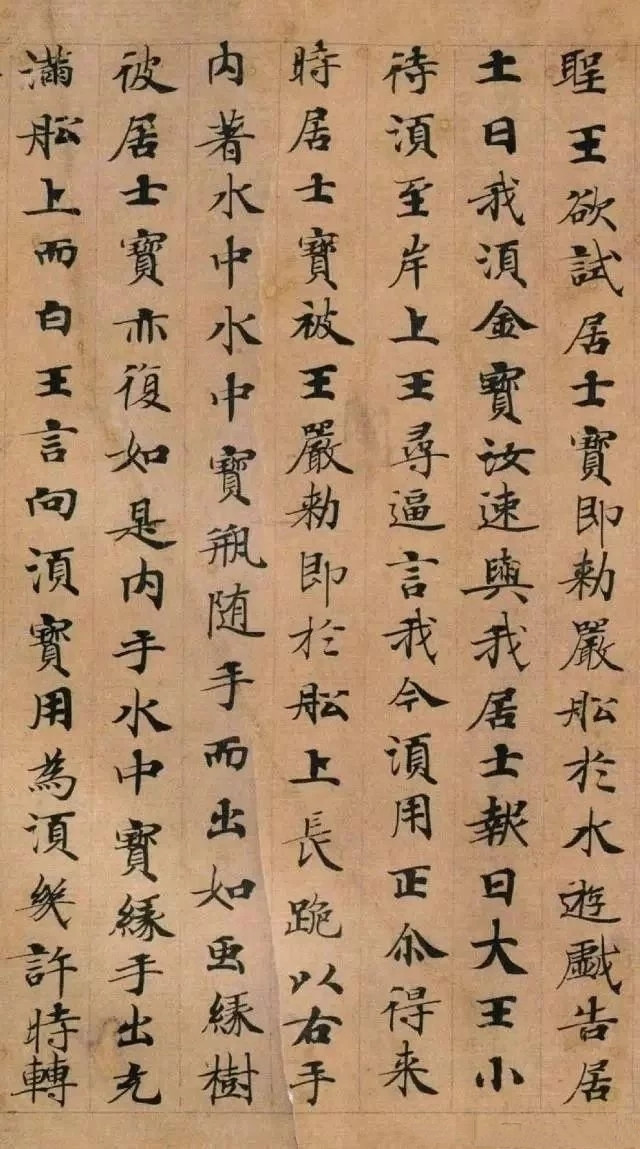 聖王欲試居士寶即勑嚴舩於水遊戲告居
士曰我湏金寶汝速與我居士報曰大王小
待湏至岸上王尋逼言我今湏用正尒得来
時居士寶被王嚴勑即於舩上長跪以右手
内著水中水中寶瓶随手而出如虫緣樹
彼居士寶亦復如是内手水中寶緣手出充
滿舩上而白王言向湏寶用為湏幾許時轉